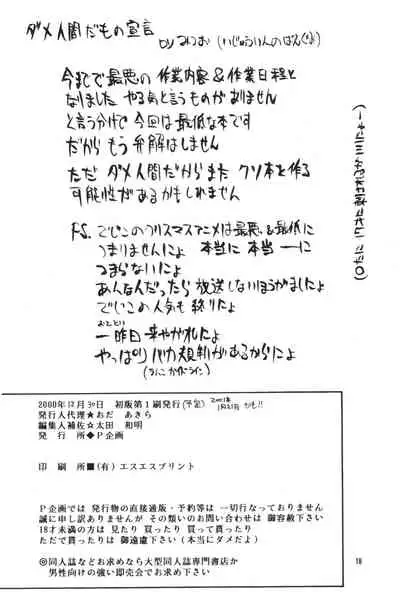 ダメ人間だもの宣言
by
今まで最悪の作業内容&作業日程と
なりました やる気と言うものがありません
と言う分けで今回は最低な本です
だから もう弁解はしません
ただ ダメ人間だからまた クソ本を作る
可能性があるかもしれません
P.S. でじこのクリスマスアニメは最悪&最低に
つまりませんにょ 本当に 本当ーーに
つまらないにょ
あんなんだったら 放送しないほうがましにょ
でじこの人気も 終りにょ
一昨日来やがれにょ
おととい
やっぱり バカ規制があるからにょ
2000年12月30日 初版第1刷発行(予定) 2001年
1月21日 かも!!
発行人代理★おだ あきら
編集人補佐☆太田 和明
発 行 所◆P企画
印 刷 所■(有)エスエスプリント
P企画では 発行物の直接通販・予約等は 一切行なっておりません
誠に申し訳ありませんが その類いのお問い合わせは 御容赦下さい
18才未満の方は 見たり 買ったり 買って貰ったり
ただで貰ったりは 御遠慮下さい(本当にダメだよ)
◎同人誌などお求めなら大型同人誌専門書店か
男性向けの強い即売会でお求め下さい
18